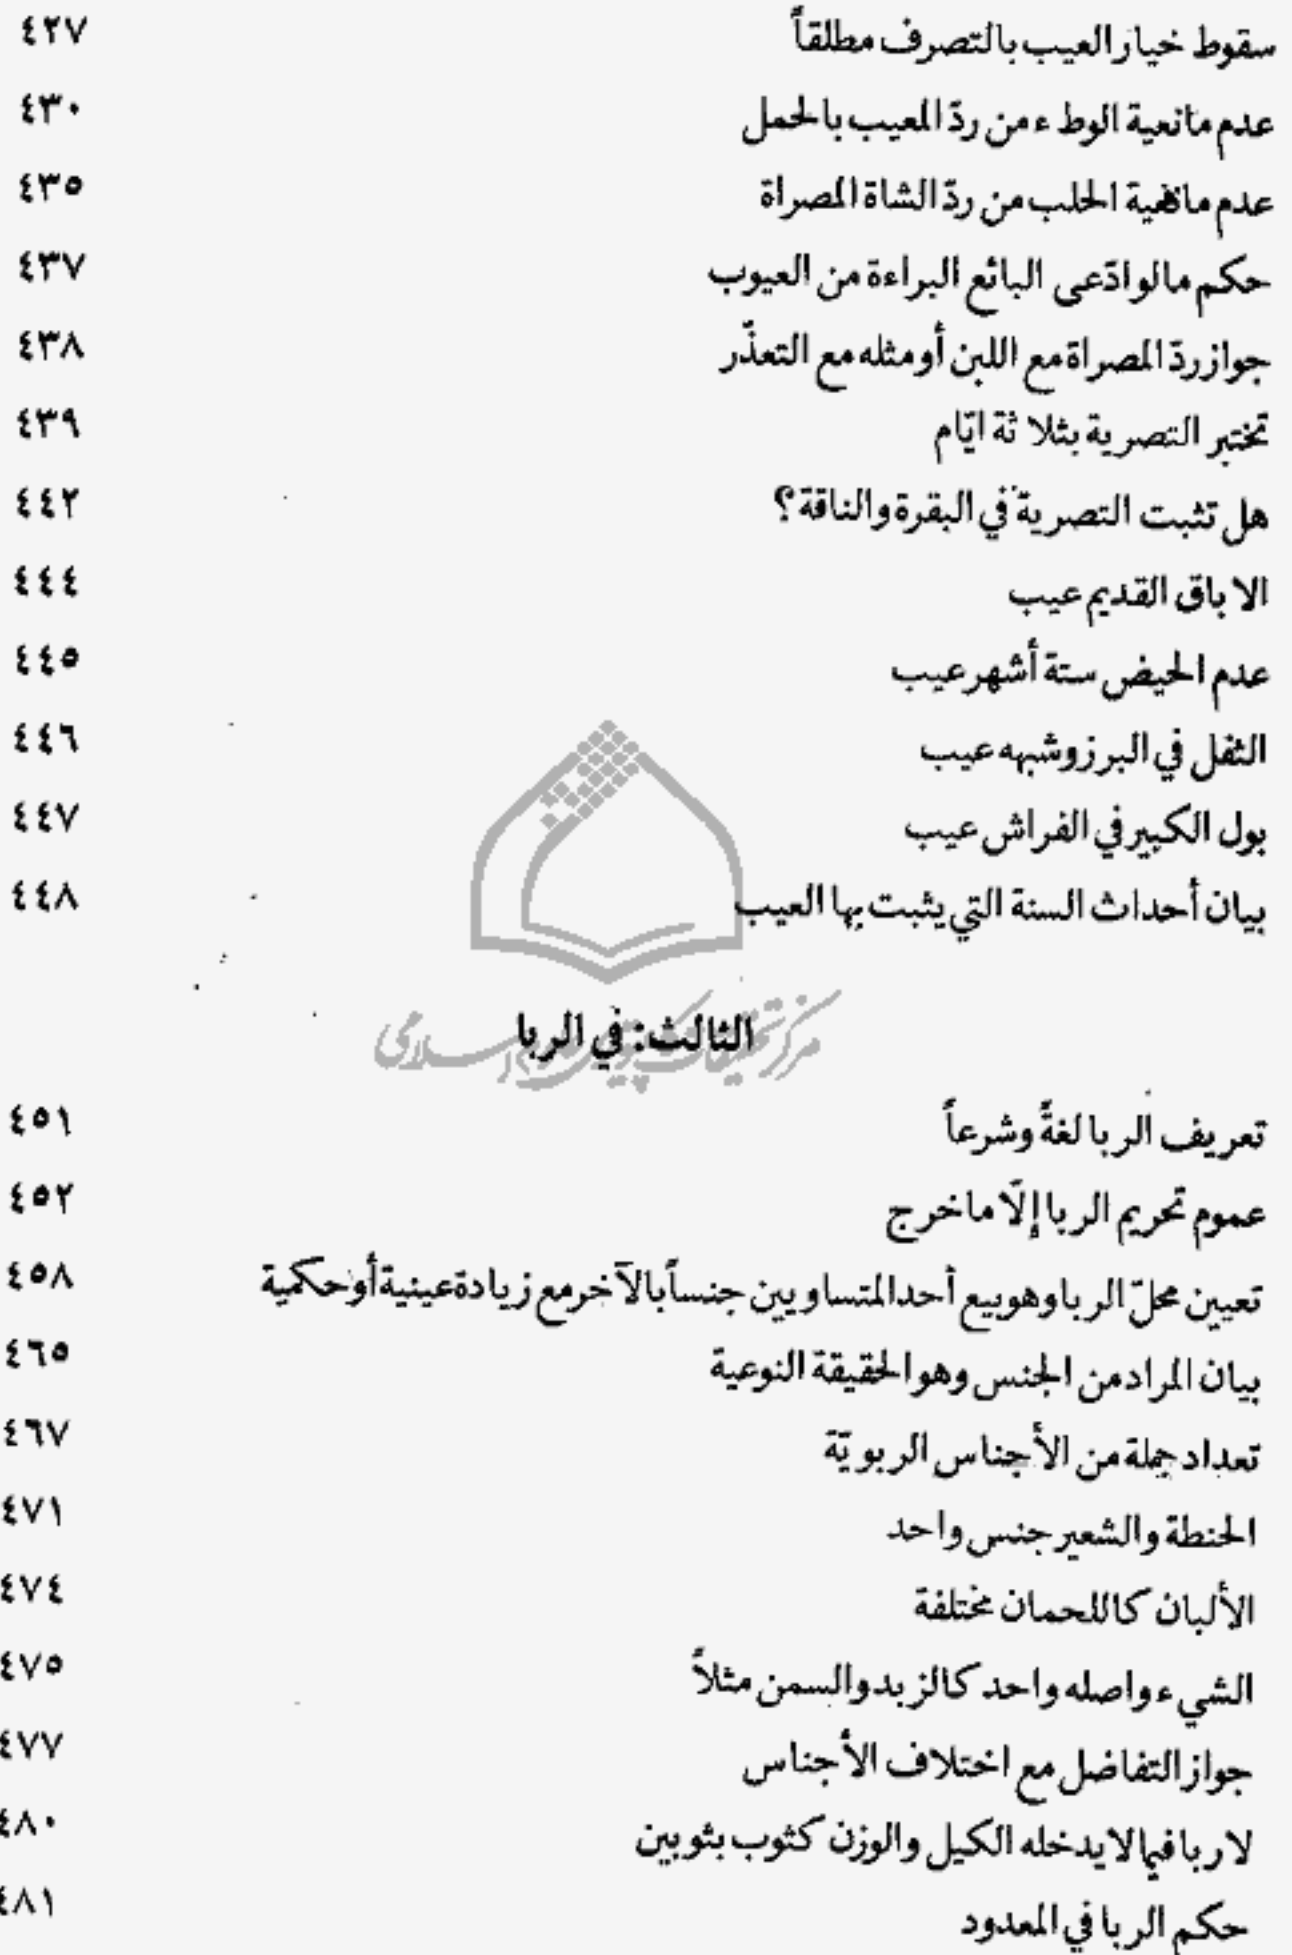 سقوط خيار العيب بالتصرف مطلقاً ٤٢٧
عدم مانعية الوطء من ردّ المعيب بالحمل ٤٣٠
عدم مانعية الحلب من ردّ الشاة المصراة ٤٣٥
حكم مالو ادّعى البائع البراءة من العيوب ٤٣٧
جواز ردّ المصراة مع اللبن أو مثله مع التعذّر ٤٣٨
تختبر التصرية بثلاثة ايّام ٤٣٩
هل تثبت التصرية في البقرة والناقة؟ ٤٤٢
الاباق القديم عيب ٤٤٤
عدم الحيض ستة أشهر عيب ٤٤٥
الثفل في البزر وشبهه عيب ٤٤٦
بول الكبير في الفراش عيب ٤٤٧
بيان أحداث السنة التي يثبت بها العيب ٤٤٨
الثالث: في الربا
مركز تحقيقات كامپيوترى علوم اسلامى
تعريف الربا لغةً وشرعاً ٤٥١
عموم تحريم الربا إلّا ماخرج ٤٥٢
تعيين محلّ الربا وهو بيع أحد المتساويين جنساً بالآخر مع زيادة عينية أو حكمية ٤٥٨
بيان المراد من الجنس وهو الحقيقة النوعية ٤٦٥
تعداد جملة من الأجناس الربويّة ٤٦٧
الحنطة والشعير جنس واحد ٤٧١
الألبان كاللحمان مختلفة ٤٧٤
الشيء واصله واحد كالزبد والسمن مثلاً ٤٧٥
جواز التفاضل مع اختلاف الأجناس ٤٧٧
لا ربا فيما لا يدخله الكيل والوزن كثوب بثوبين ٤٨٠
حكم الربا في المعدود ٤٨١